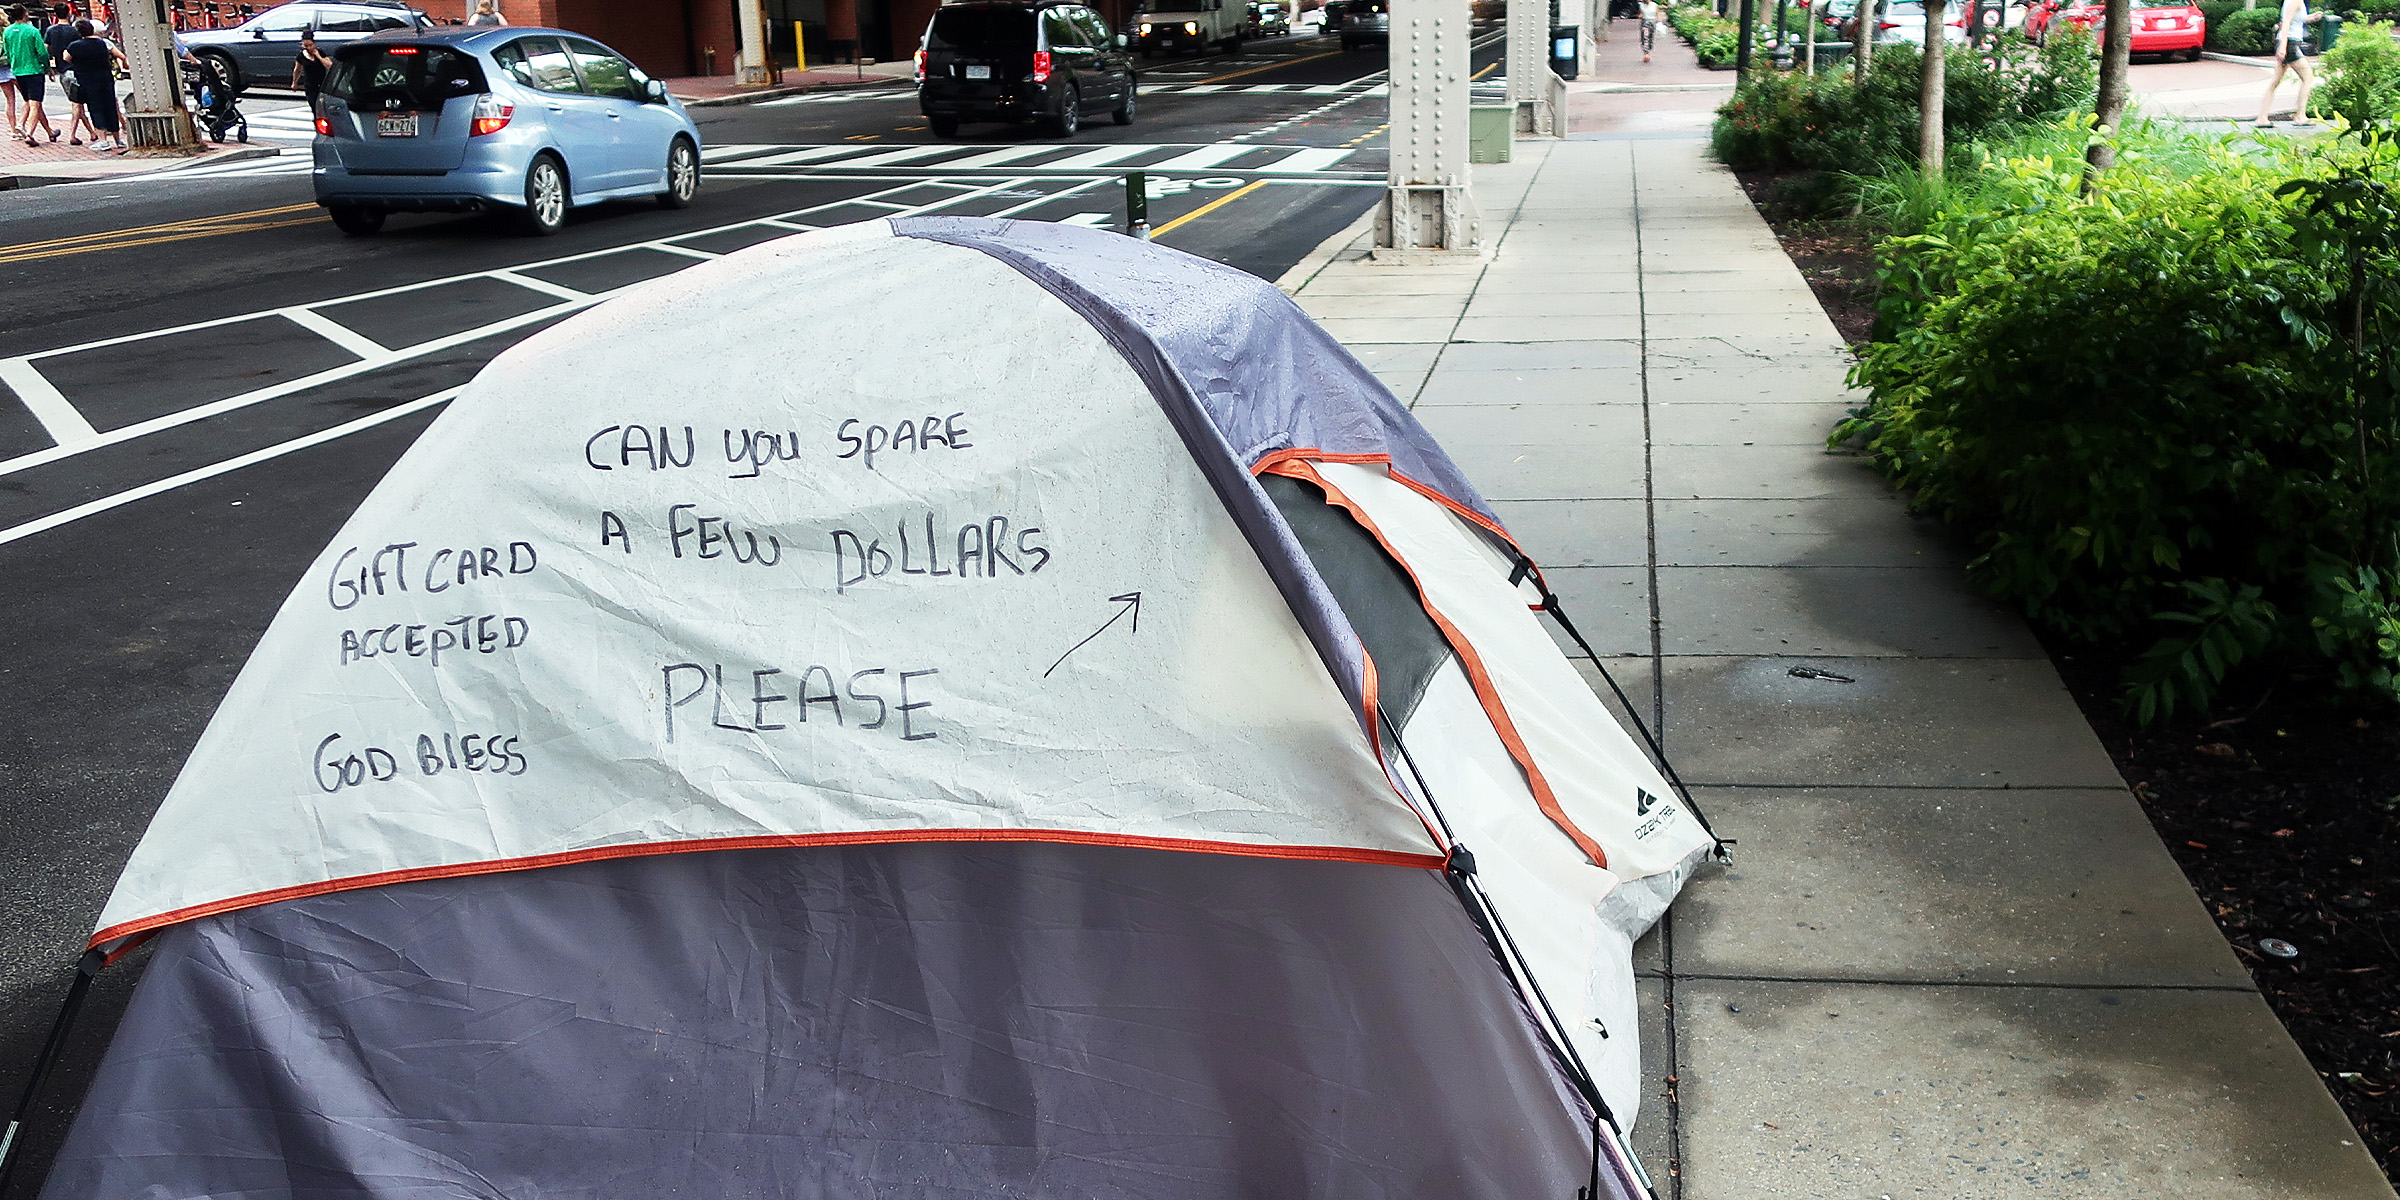 CAN you SPARE
A FEW DOLLARS
PLEASE
GIFT CARD
ACCEPTED
GOD BLESS
OZARK TRAIL